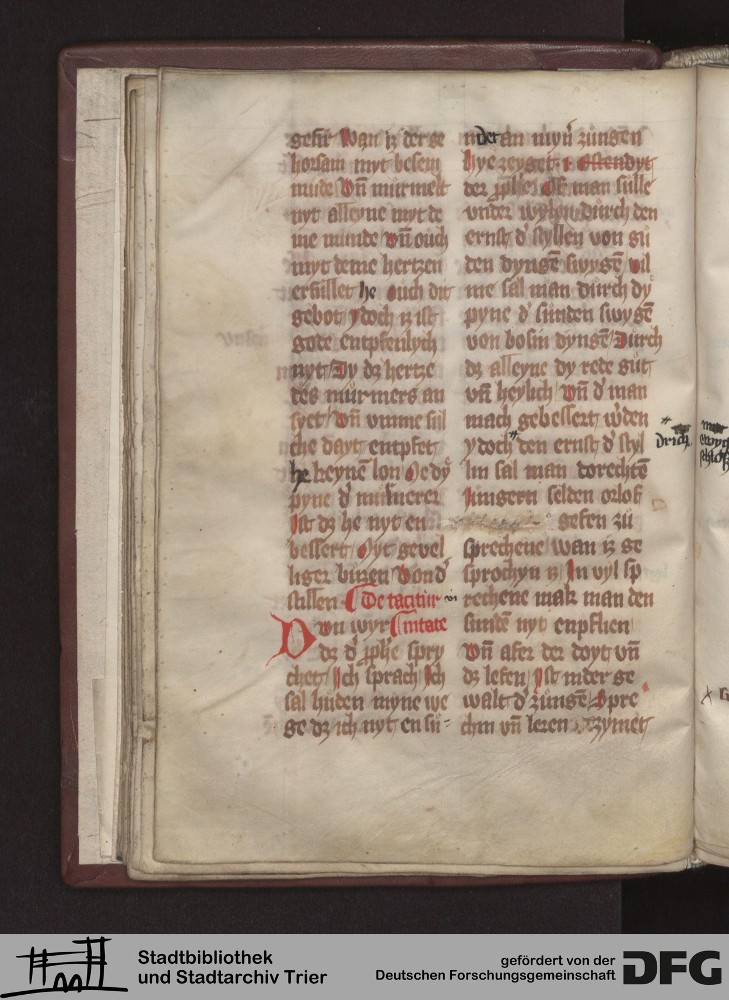 gesit Wan iz der ge
horsam myt besem
mude Vn̄ murmelt
nyt alleyne myt de
me munde Vn̄ ouch
myt deme hertzen
erfullet he Ouch dit
gebot ydoch iz ist
gode entpfenlych
nyt Dy dz hertze
des murmers an
syet Vn̄ vmme sul
che dayt entpfet
he keynē lon Me dy
pyne d' murmerer
Ist dz he nyt en
bessert Myt gevel
liger buzen Von d'
stillen De taciturvi
Dvn wyr nitate
dz d' ꝓph̄e spry
chet Ich sprach Ich
sal huden myne we
ge dz ich nyt en su=
nder an myn̄ zungen
Hye zeyget ostendyt
der ꝓph̄e Ob man sulle
vnder wylen durch den
ernst d' styllen von gu
den dyngē swygē vil
me sal man durch dy
pyne d' sunden swygē
von bosin dyngē Durch
dz alleyne dy rede gut
vn̄ heylich Vn̄ d' man
mach gebessert w'den
ydoch den ernst d' styl
lin sal man dorechtē
Jungern selden orlof
gefen zu
sprechene wan iz ge
sprochyn iz In vyl sp
rechene mak man den
sundē nyt enpflien
Vn̄ afer der doyt vn̄
dz lefen Ist in der ge
walt d' zungē Spre
chin vn̄ leren zymet
drich
Stadtbibliothek
und Stadtarchiv Trier
gefördert von der
Deutschen Forschungsgemeinschaft
DFG